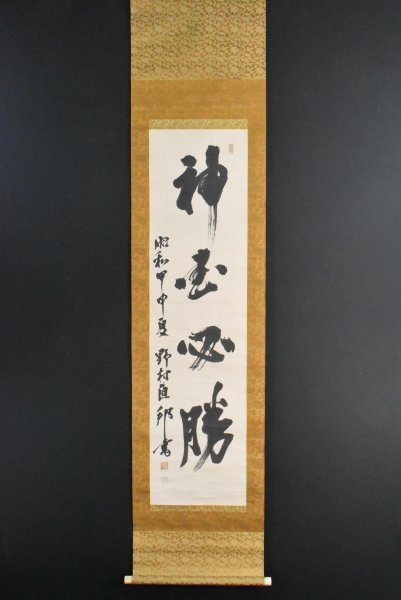 神国必勝
昭和甲申夏 野村直邦書